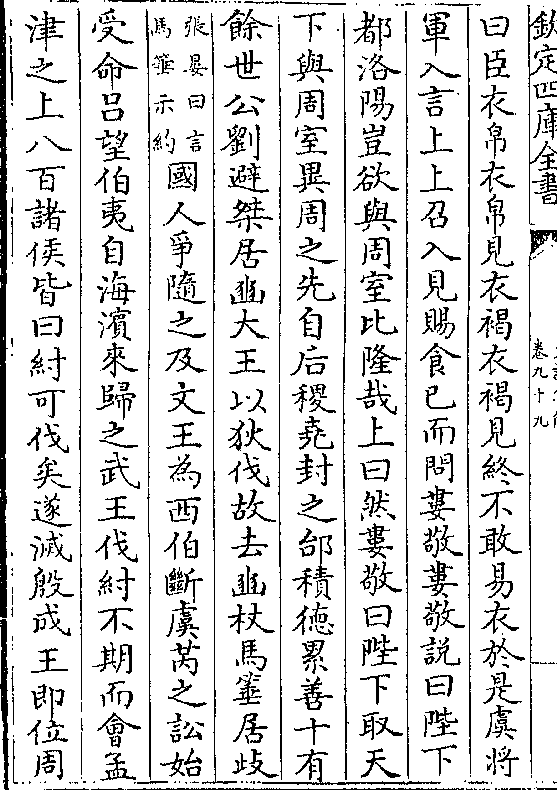 欽定四庫全書
卷九十九
曰臣衣帛衣帛見衣褐衣褐見終不敢易衣於是虞將
軍入言上上召入見賜食已而問婁敬婁敬説曰陛下
都洛陽豈欲與周室比隆哉上曰然婁敬曰陛下取天
下與周室異周之先自后稷堯封之邰積德累善十有
餘世公劉避桀居豳大王以狄伐故去豳杖馬箠居歧
張晏曰言
馬箠示約
國人爭隨之及文王為西伯斷虞芮之訟始
受命吕望伯夷自海濱來歸之武王伐紂不期而會孟
津之上八百諸侯皆曰紂可伐矣遂滅殷成王即位周